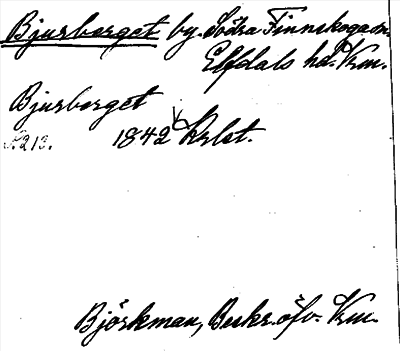 Bjurberget by. Södra Finnskoga sn.
Elfdals hd. Vrm.
Bjurberget
s. 213. 1842 Krlst.
Björkman, Beskr. öfv. Vrm.